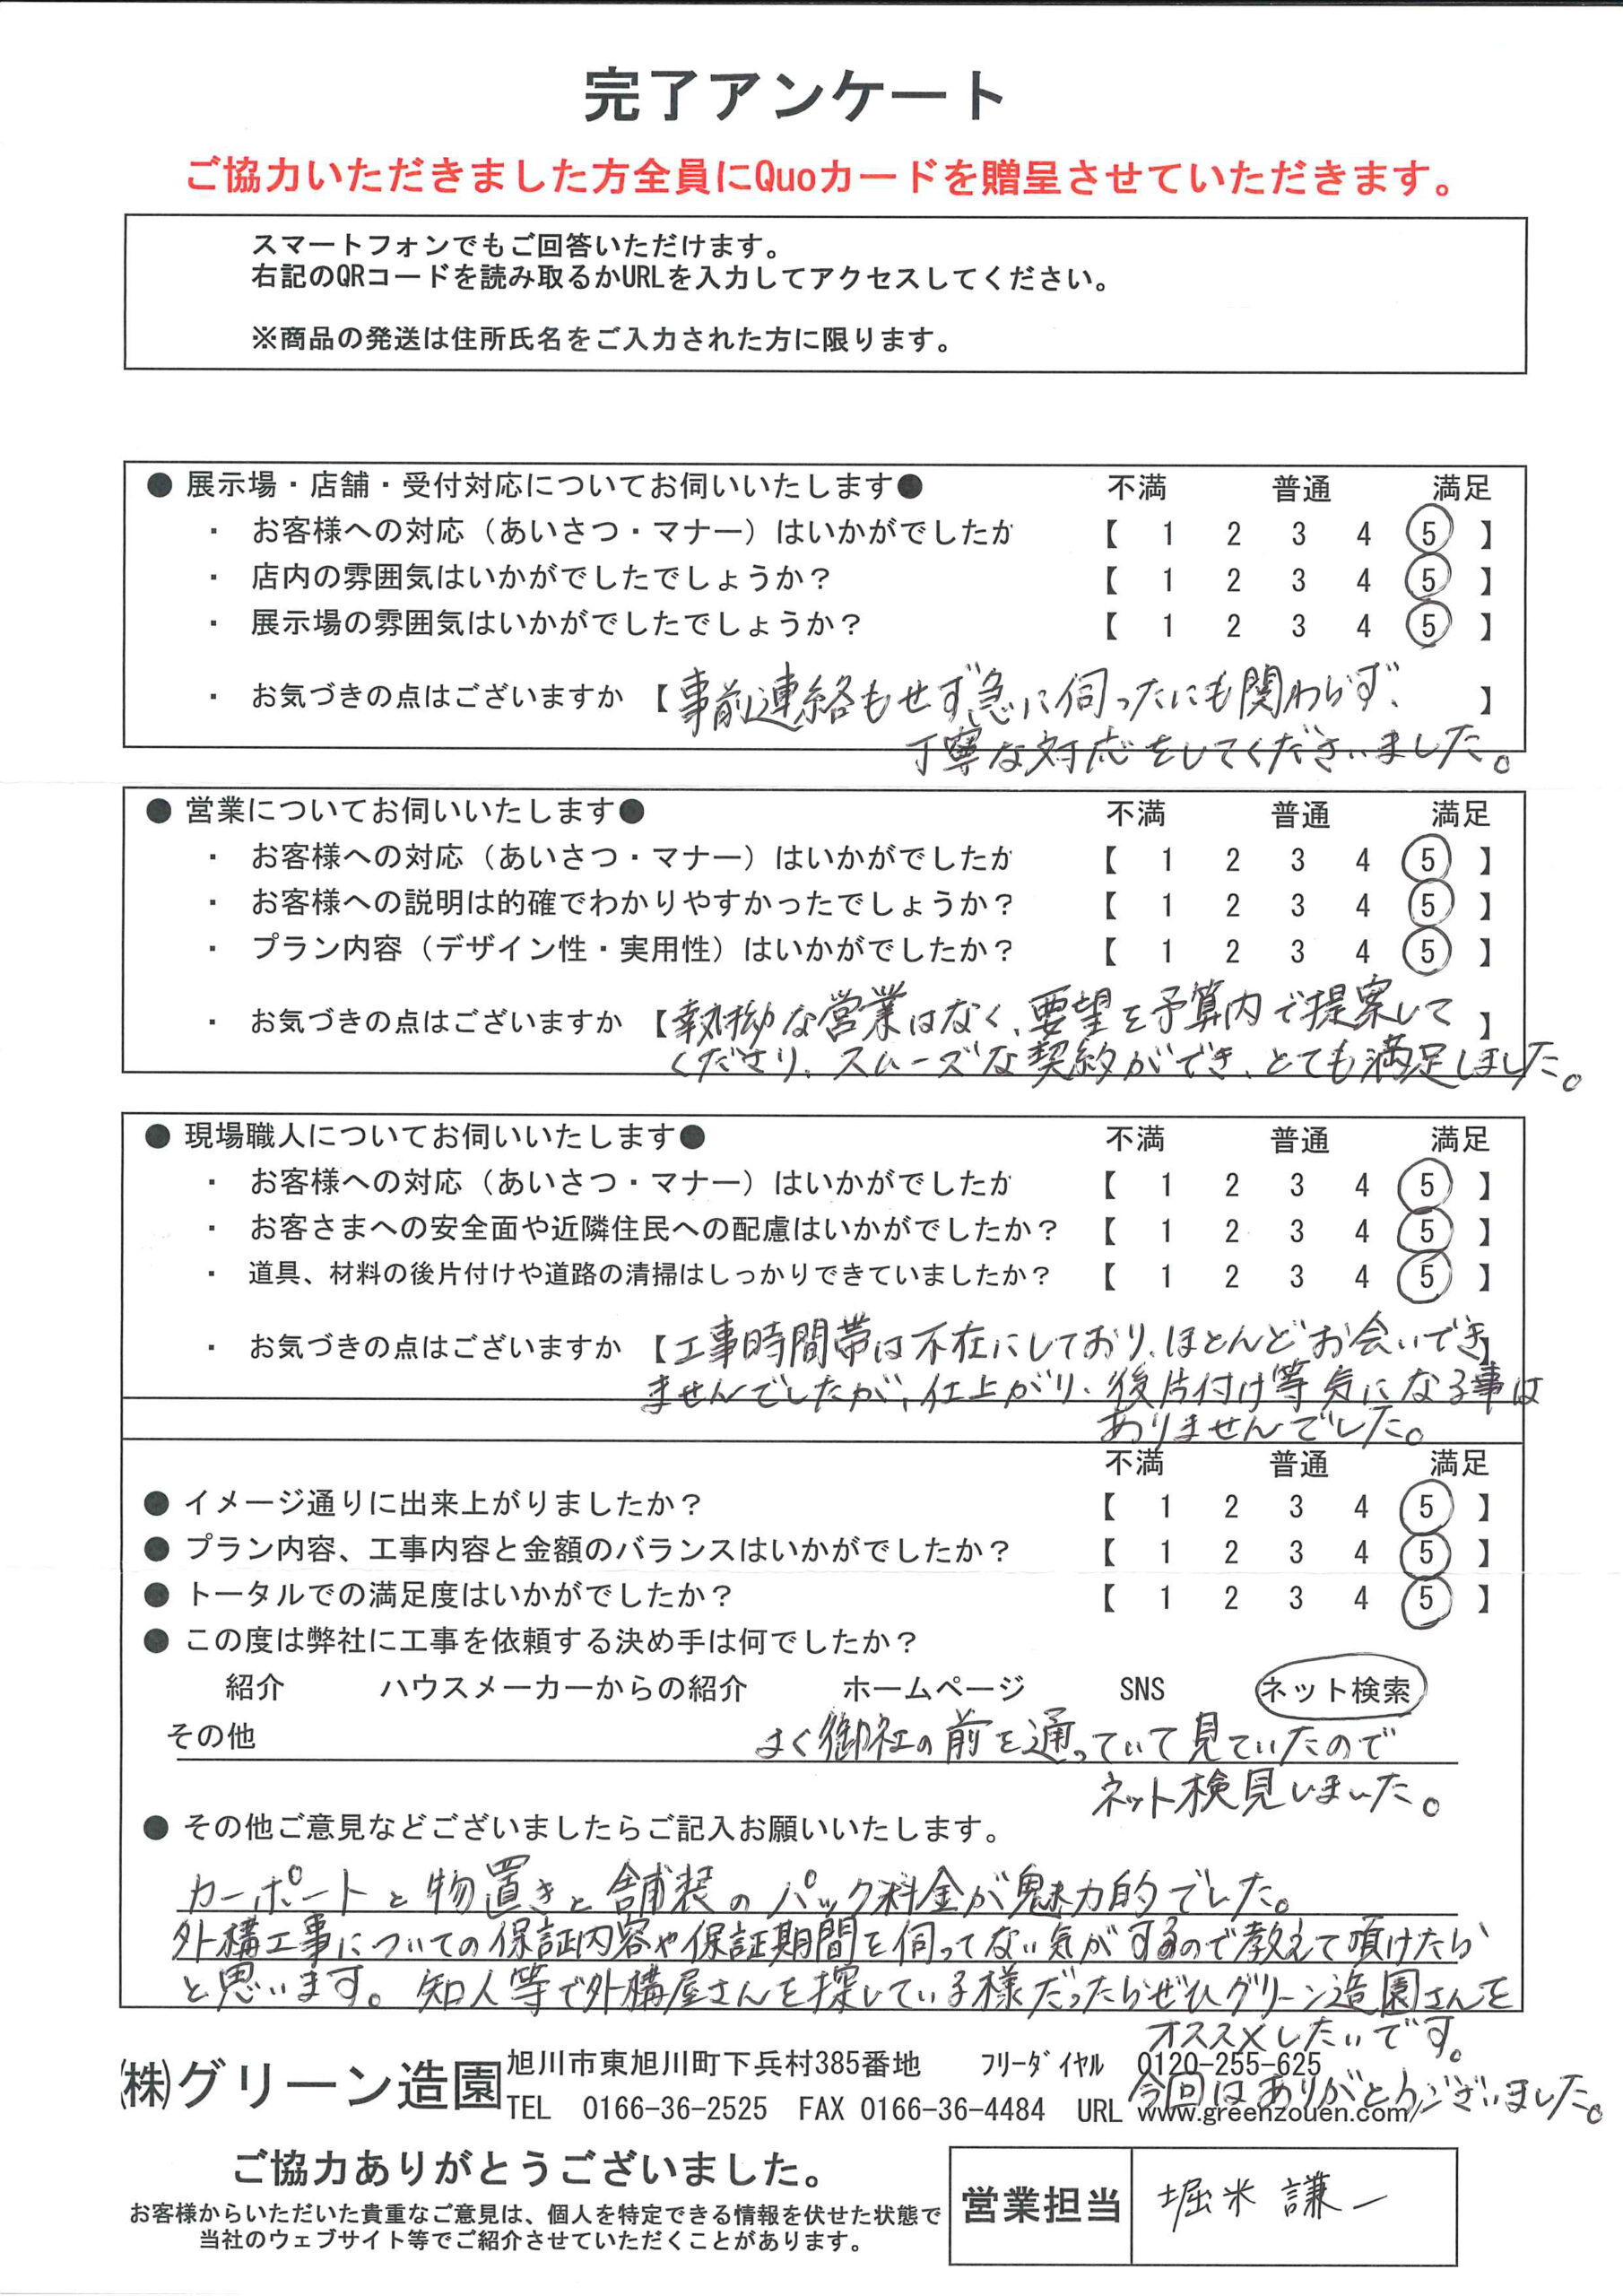 完了アンケート
ご協力いただきました方全員にQuoカードを贈呈させていただきます。
スマートフォンでもご回答いただけます。
右記のQRコードを読み取るかURLを入力してアクセスしてください。
※商品の発送は住所氏名をご入力された方に限ります。
● 展示場・店舗・受付対応についてお伺いいたします● 不満 普通 満足
・ お客様への対応（あいさつ・マナー）はいかがでしたか 【 1 2 3 4 5 】
・ 店内の雰囲気はいかがでしたでしょうか？ 【 1 2 3 4 5 】
・ 展示場の雰囲気はいかがでしたでしょうか？ 【 1 2 3 4 5 】
・ お気づきの点はございますか 【事前連絡もせず急に伺ったにも関わらず、 】
丁寧な対応をしてくださいました。
● 営業についてお伺いいたします● 不満 普通 満足
・ お客様への対応（あいさつ・マナー）はいかがでしたか 【 1 2 3 4 5 】
・ お客様への説明は的確でわかりやすかったでしょうか？ 【 1 2 3 4 5 】
・ プラン内容（デザイン性・実用性）はいかがでしたか？ 【 1 2 3 4 5 】
・ お気づきの点はございますか 【執拗な営業はなく、要望を予算内で提案して 】
くださり、スムーズな契約ができ、とても満足しました。
● 現場職人についてお伺いいたします● 不満 普通 満足
・ お客様への対応（あいさつ・マナー）はいかがでしたか 【 1 2 3 4 5 】
・ お客さまへの安全面や近隣住民への配慮はいかがでしたか？ 【 1 2 3 4 5 】
・ 道具、材料の後片付けや道路の清掃はしっかりできていましたか？ 【 1 2 3 4 5 】
・ お気づきの点はございますか 【工事時間帯は不在にしており、ほとんどお会いでき】
ませんでしたが、仕上がり、後片付け等気になる事は
ありませんでした。
不満 普通 満足
● イメージ通りに出来上がりましたか？ 【 1 2 3 4 5 】
● プラン内容、工事内容と金額のバランスはいかがでしたか？ 【 1 2 3 4 5 】
● トータルでの満足度はいかがでしたか？ 【 1 2 3 4 5 】
● この度は弊社に工事を依頼する決め手は何でしたか？
紹介 ハウスメーカーからの紹介 ホームページ SNS ネット検索
その他 よく御社の前を通っていて見ていたので
ネット検見しました。
● その他ご意見などございましたらご記入お願いいたします。
カーポートと物置きと舗装のパック料金が魅力的でした。
外構工事についての保証内容や保証期間を伺ってない気がするので教えて頂けたら
と思います。知人等で外構屋さんを探している様だったらぜひグリーン造園さんを
オススメしたいです。
今回はありがとうございました。
㈱グリーン造園 旭川市東旭川町下兵村385番地 ﾌﾘｰﾀﾞｲﾔﾙ 0120-255-625
TEL 0166-36-2525 FAX 0166-36-4484 URL www.greenzouen.com/
ご協力ありがとうございました。
お客様からいただいた貴重なご意見は、個人を特定できる情報を伏せた状態で
当社のウェブサイト等でご紹介させていただくことがあります。
営業担当 堀米 謙一